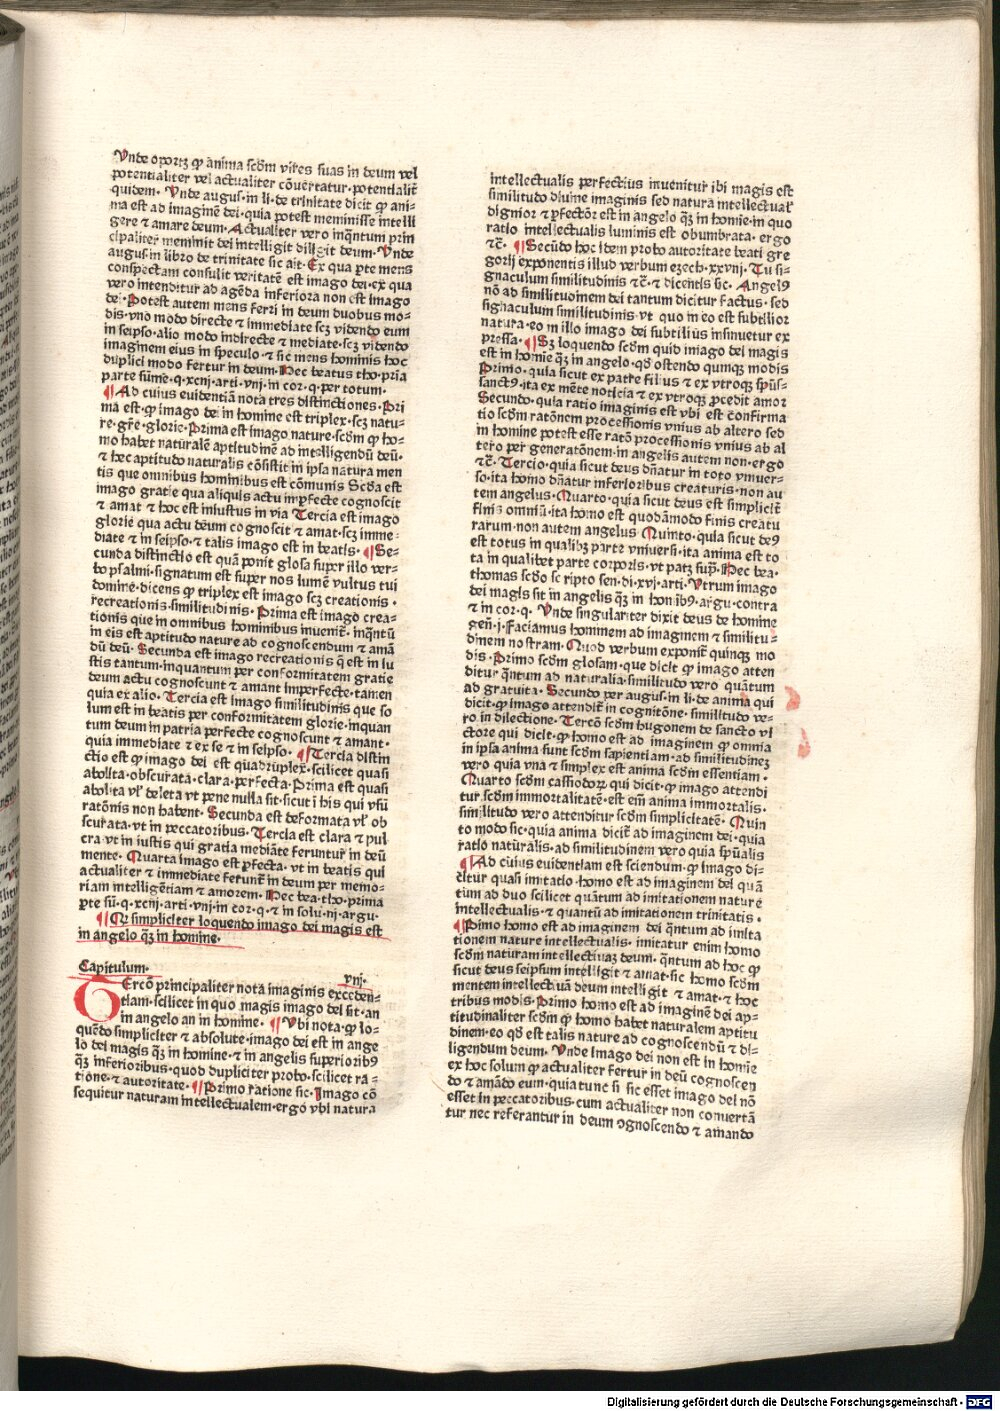 Vnde oportꝫ ꝙ anima scḋm vires suas in deum vel
potentialiter vel actualiter cōuertatur·potentialit̃
quidem· Vnde augus·in li·de trinitate dicit ꝙ ani-
ma est ad imaginē dei·quia potest meminisse intelli
gere ⁊ amare deum·Actualiter vero inq̃ntum prin
cipaliter meminit dei intelligit diligit deum· Vnde
augus·in libro de trinitate sic ait·Ex qua ꝑte mens
conspectam consulit veritatē est imago dei·ex qua
vero intenditur ad agēda inferiora non est imago
dei·Potest autem mens ferri in deum duobus mo-
dis·vno modo directe ⁊ immediate scꝫ videndo eum
in seipso·alio modo indirecte ⁊ mediate·scꝫ videndo
imaginem eius in speculo·⁊ sic mens hominis hoc
duplici modo fertur in deum·Hec beatus tho·pr̄ia
parte sūme·q·xcnj·arti·vnj·in cor·q·per totum·
¶Ad cuius euidentiā nota tres distinctiones·Pri
ma est·ꝙ imago dei in homine est triplex·scꝫ natu-
re·gr̃e·glorie·Prima est imago nature·scḋm ꝙ ho-
mo habet naturalē aptitudinē ad intelligendū deū·
⁊ hec aptitudo naturalis cōsistit in ipsa natura men
tis que omnibus hominibus est cōmunis Scḋa est
imago gratie qua aliquis actu imꝑfecte cognoscit
⁊ amat ⁊ hoc est iniustus in via Tercia est imago
glorie qua actu deum cognoscit ⁊ amat·scꝫ imme-
diate ⁊ in seipso·⁊ talis imago est in beatis· ¶Se-
cunda distinctio est quā ponit glosa super illo ver-
bo psalmi·signatum est super nos lumē vultus tui
domine·dicens ꝙ triplex est imago scꝫ creationis·
recreationis·similitudinis· Prima est imago crea-
tionis que in omnibus hominibus inuenit̃·inq̃ntū
in eis est aptitudo nature ad cognoscendum ⁊ amā
dū deū· Secunda est imago recreationis q̃ est in iu
stis tantum·inquantum per conformitatem gratie
deum actu cognoscunt ⁊ amant imperfecte·tamen
quia ex alio· Tercia est imago similitudinis que so
lum est in beatis per conformitatem glorie·inquan
tum deum in patria perfecte cognoscunt ⁊ amant·
quia immediate ⁊ ex se ⁊ in seipso· ¶Tercia distin
ctio est ꝙ imago dei est quadruplex·scilicet quasi
abolita·obscurata·clara·perfecta·Prima est quasi
abolita vl̕ deleta vt pene nulla sit·sicut i his qui vsū
ratōnis non habent· Secunda est deformata vl̕ ob
scurata·vt in peccatoribus· Tercia est clara ⁊ pul
cra vt in iustis qui gratia mediāte feruntur in deū
mente· Quarta imago est ꝑfecta· vt in beatis qui
actualiter ⁊ immediate ferunt̃ in deum per memo-
riam intelligētiam ⁊ amorem·Hec bea·tho·prima
ꝑte sū·q·xcnj·arti·vnj·in cor·q·⁊ in solu·nj·argu·
¶Qꝛ simpliciter loquendo imago dei magis est
in angelo q̃ꝫ in homine·
Capitulum· vnj·
TErcō principaliter nota imaginis exceden-
tiam·scilicet in quo magis imago dei sit·an
in angelo an in homine· ¶Vbi nota·ꝙ lo-
quēdo simpliciter ⁊ absolute·imago dei est in ange
lo dei magis q̃ꝫ in homine·⁊ in angelis superioribꝯ
q̃ꝫ inferioribus·quod dupliciter probo·scilicet ra-
tione·⁊ autoritate· ¶Primo ratione sic·Imago cō
sequitur naturam intellectualem·ergo vbi natura
intellectualis perfectius inuenitur ibi magis est
similitudo diuine imaginis sed natura intellectual̕
dignior ⁊ ꝑfectioꝛ est in angelo q̃ꝫ in homīe·in quo
ratio intellectualis luminis est obumbrata· ergo
⁊c̃· ¶Secūdo hoc idem probo autoritate beati gre
gorij exponentis illud verbum ezech·xxvnj·Tu si-
gnaculum similitudinis ⁊c̃·⁊ dicentis sic· Angelꝯ
nō ad similitudinem dei tantum dicitur factus·sed
signaculum similitudinis·vt quo in eo est subtilior
natura·eo in illo imago dei subtilius insinuetur ex
pressa·¶Sꝫ loquendo scḋm quid imago dei magis
est in homīe q̃ꝫ in angelo·qḋ ostendo quinqꝫ modis
Primo·quia sicut ex patre filius ⁊ ex vtroqꝫ sp̄us-
sanctꝯ·ita ex mēte noticia ⁊ ex vtroqꝫ ꝓcedit amor
Secundo·quia ratio imaginis est vbi est cōfirma
tio scḋm ratōnem processionis vnius ab altero sed
in homine potest esse ratō processionis vnius ab al
tero per generatōnem·in angelis autem non·ergo
⁊c̃·Tercio·quia sicut deus dn̄atur in toto vniuer-
so·ita homo dn̄atur inferioribus creaturis·non au
tem angelus·Quarto·quia sicut deus est simplicit̃
finis omniū·ita homo est quodāmodo finis creatu
rarum·non autem angelus Quinto·quia sicut deꝯ
est totus in qualibꝫ parte vniuersi·ita anima est to
ta in qualibet parte corporis·vt patꝫ sup̃·Hec bea·
thomas scḋo scripto sen·di·xvj·arti·Vtrum imago
dei magis sit in angelis q̃ꝫ in hominībꝯ·argu·contra
⁊ in cor·q· Vnde singulariter dixit deus de homine
gen̄·j·Faciamus hominem ad imaginem ⁊ similitu-
dinem nostram·Quod verbum exponit̃ quinqꝫ mo
dis·Primo scḋm glosam·que dicit ꝙ imago atten
ditur q̃ntum ad naturalia·similitudo vero quātum
ad gratuita· Secundo per augus·in li·de anima qui
dicit·ꝙ imago attendit̃ in cognitōne·similitudo ve-
ro in dilectione·Tercō scḋm hugonem de sancto vi
ctore qui dicit·ꝙ homo est ad imaginem ꝙ omnia
in ipsa anima sunt scḋm sapientiam·ad similitudineꝫ
vero quia vna ⁊ simplex est anima scḋm essentiam·
Quarto scḋm cassiodoꝝ qui dicit·ꝙ imago attendi
tur scḋm immortalitatē·est em̄ anima immortalis·
similitudo vero attenditur scḋm simplicitatē· Quin
to modo sic·quia anima dicit̃ ad imaginem dei·quia
ratio naturalis·ad similitudinem vero quia sp̄ualis
¶Ad cuius euidentiam est sciendum·ꝙ imago di-
citur quasi imitatio·homo est ad imaginem dei quā
tum ad duo scilicet quātum ad imitationem nature
intellectualis·⁊ quantū ad imitationem trinitatis·
¶Pimo homo est ad imaginem dei q̃ntum ad imita
tionem nature intellectualis· imitatur enim homo
scḋm naturam intellectiuaꝫ deum· q̃ntum ad hoc ꝙ
sicut deus seipsum intelligit ⁊ amat·sic homo scḋm
mentem intellectuā deum intelligit ⁊ amat·⁊ hoc
tribus modis·Primo homo est ad imaginē dei ap-
titudinaliter scḋm ꝙ homo habet naturalem aptitu
dinem·eo qḋ est talis nature ad cognoscendū ⁊ di-
ligendum deum· Vnde imago dei non est in homīe
ex hoc solum ꝙ actualiter fertur in deū cognoscen
do ⁊ amādo eum·quia tunc si sic esset imago dei nō
esset in peccatoribus·cum actualiter non conuertā
tur nec referantur in deum ꝯgnoscendo ⁊ amando
Digitalisierung gefördert durch die Deutsche Forschungsgemeinschaft - DFG